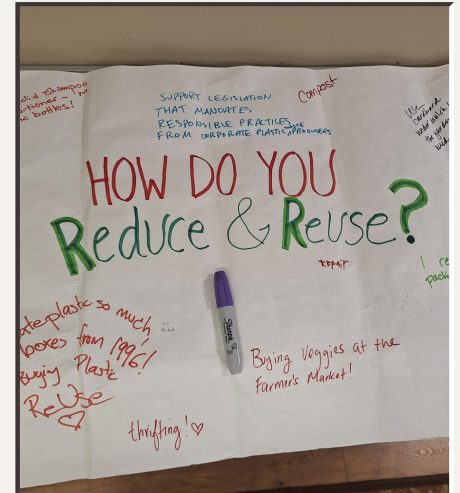 olid shampoo
ctioner - no
c bottles!
SUPPORT LEGISLATION
THAT MANDATES
RESPONSIBLE PRACTICES
FROM CORPORATE PLASTIC WASTE PRODUCERS
Compost
USE
Cardboard
under mulch
the garden
HOW DO YOU
REDUCE & REUSE?
repair
I re
pack
ate plastic so much
boxes from 1996!
Buying Plastic
ReUse
Sharpie
Buying Veggies at the
Farmer's Market!
thrifting!